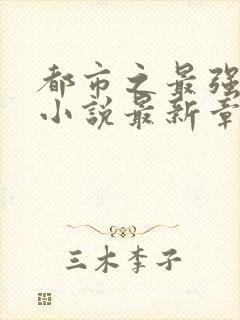 都市之最强
小说最新章
三木李子